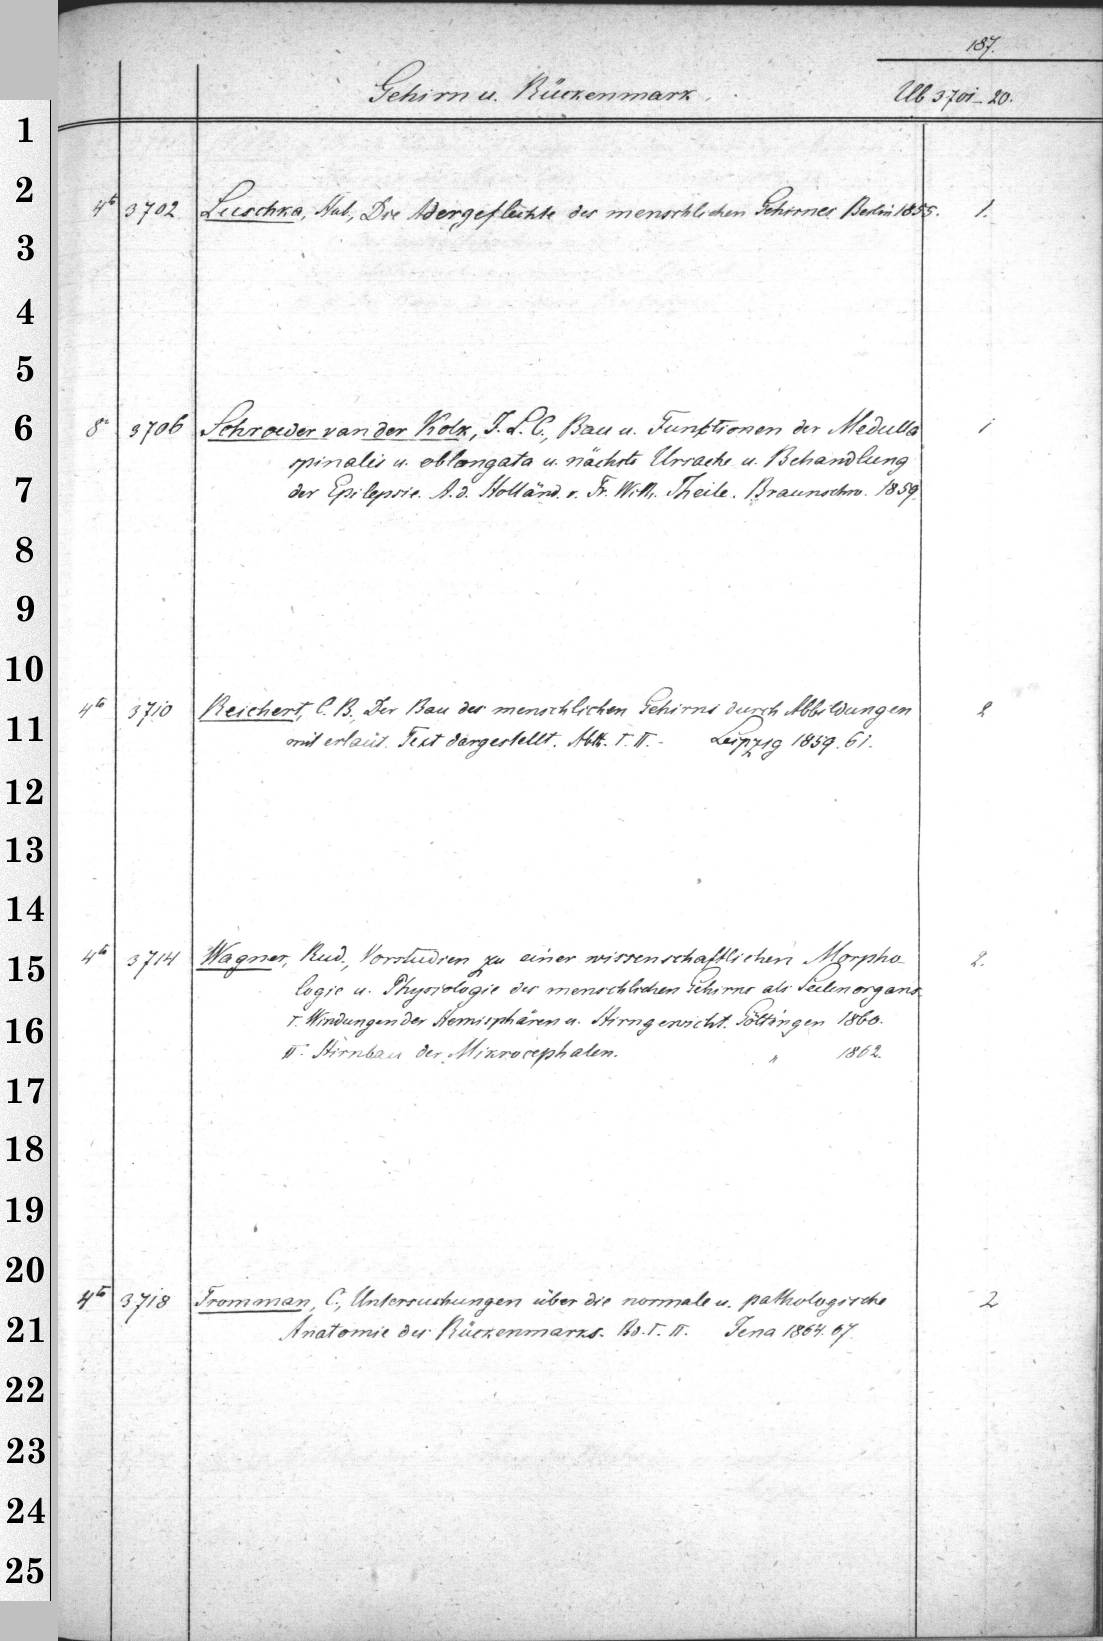 187.
Gehirn u. Rückenmark. Ub 3701-20.
1
2
4to 3702 Luschka, Hub., Die Adergeflechte des menschlichen Gehirnes Berlin 1855. 1.
3
4
5
6
8o 3706 Schroeder van der Kolk, J. L. C., Bau u. Funktionen der Medulla 1
spinalis u. oblongata u. nächste Ursache u. Behandlung
7
der Epilepsie. A. d. Holländ. v. Fr. Wilh. Theile. Braunschw. 1859
8
9
10
4to 3710 Reichert, C. B. Der Bau des menschlichen Gehirns durch Abbildungen 2
11
mit erläut. Text dargestellt. Abth. I. II. - Leipzig 1859. 61.
12
13
14
15
4to 3714 Wagner, Rud., Vorstudien zu einer wissenschaftlichen Morpho 2.
logie u. Physiologie des menschlichen Gehirns als Seelenorgans
16
I. Windungen der Hemisphären u. Hirngewicht. Göttingen 1860.
II. Hirnbau der Mikrocephalen. " 1862.
17
18
19
20
4to 3718 Fromman, C., Untersuchungen über die normale u. pathologische 2
21
Anatomie des Rückenmarks. Bd. I. II. Jena 1864. 67
22
23
24
25